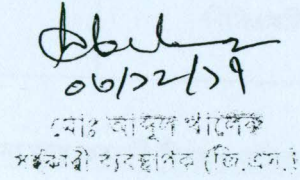 ০৬/১২/১৭
মোঃ আব্দুল খালেক
সহকারী ব্যবস্থাপক (জি.এস.)